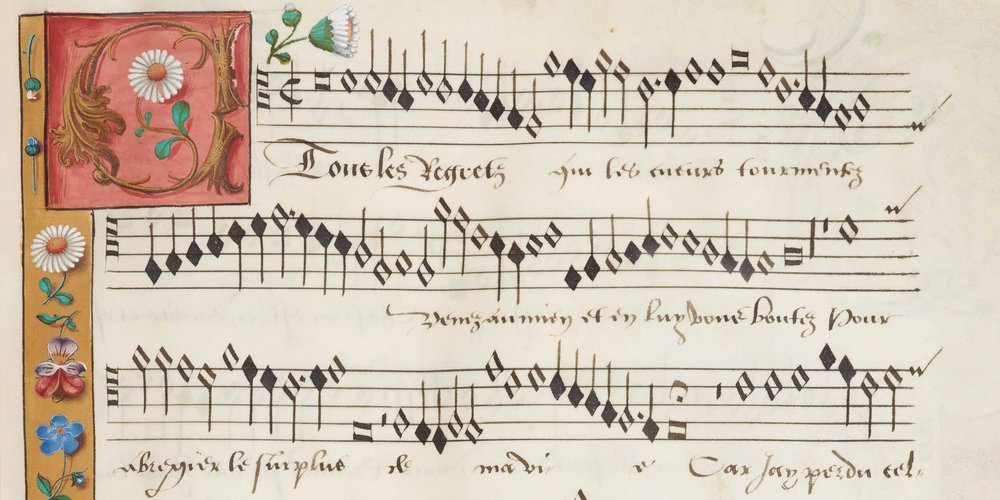 Tous les Regretz qui les cueurs tourmentez
Venez au mien et en luy vous boutez Pour
abregier le surplus de ma vi e Car Jay perdu cel-